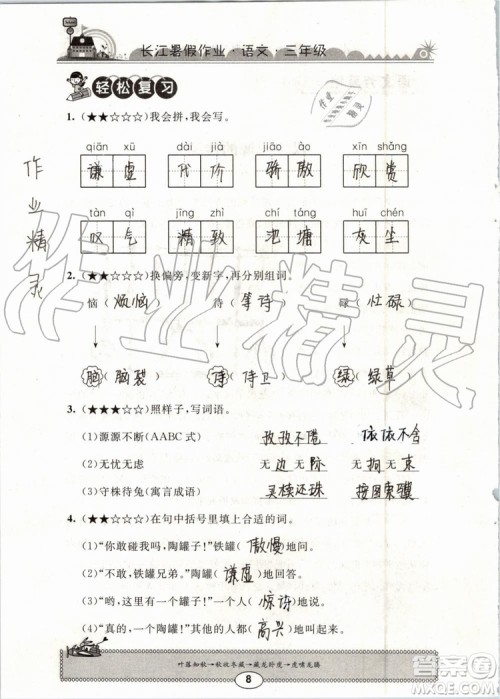 长江暑假作业·语文·三年级
轻松复习
1.(★★☆☆☆)我会拼,我会写。
qiān xū dài jià jiāo ào xīn shǎng
谦虚 代价 骄傲 欣赏
tàn qì jīng zhì chí táng huī chén
叹气 精致 池塘 灰尘
2.(★★☆☆☆)换偏旁,变新字,再分别组词。
恼(烦恼) 待(等待) 碌(忙碌)
脑(脑裂) 侍(侍卫) 绿(绿草)
3.(★★★☆☆)照样子,写词语。
(1)源源不断(AABC式) 孜孜不倦 依依不舍
(2)无忧无虑 无边无际 无拘无束
(3)守株待兔(寓言成语) 买椟还珠 按图索骥
4.(★★☆☆☆)在句中括号里填上合适的词。
(1)“你敢碰我吗,陶罐子!”铁罐(傲慢)地问。
(2)“不敢,铁罐兄弟。”陶罐(谦虚)地回答。
(3)“哟,这里有一个罐子!”一个人(惊讶)地说。
(4)“真的,一个陶罐!”其他的人都(高兴)地叫起来。
叶落知秋→秋收冬藏→藏龙卧虎→虎啸龙腾
8
作业精灵
作业精灵
作业精灵
答案圈